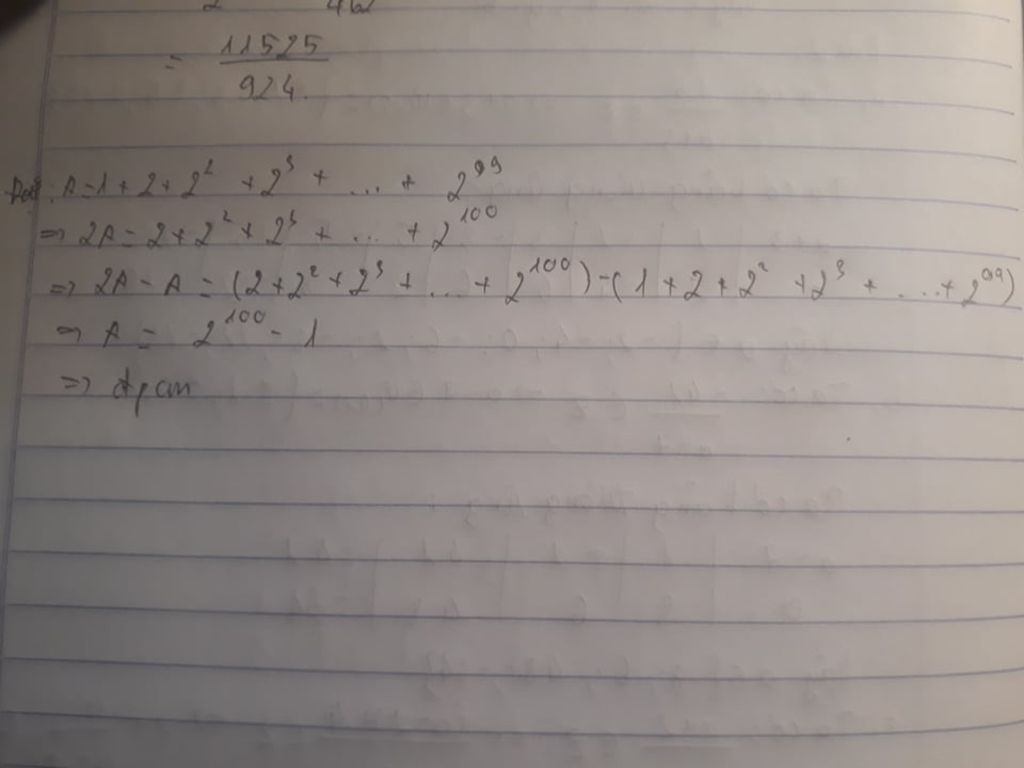 = 11525/924
Đặt: A = 1 + 2 + 2² + 2³ + ... + 2⁹⁹
⇒ 2A = 2 + 2² + 2³ + ... + 2¹⁰⁰
⇒ 2A - A = (2 + 2² + 2³ + ... + 2¹⁰⁰) - (1 + 2 + 2² + 2³ + ... + 2⁹⁹)
⇒ A = 2¹⁰⁰ - 1
⇒ đpcm